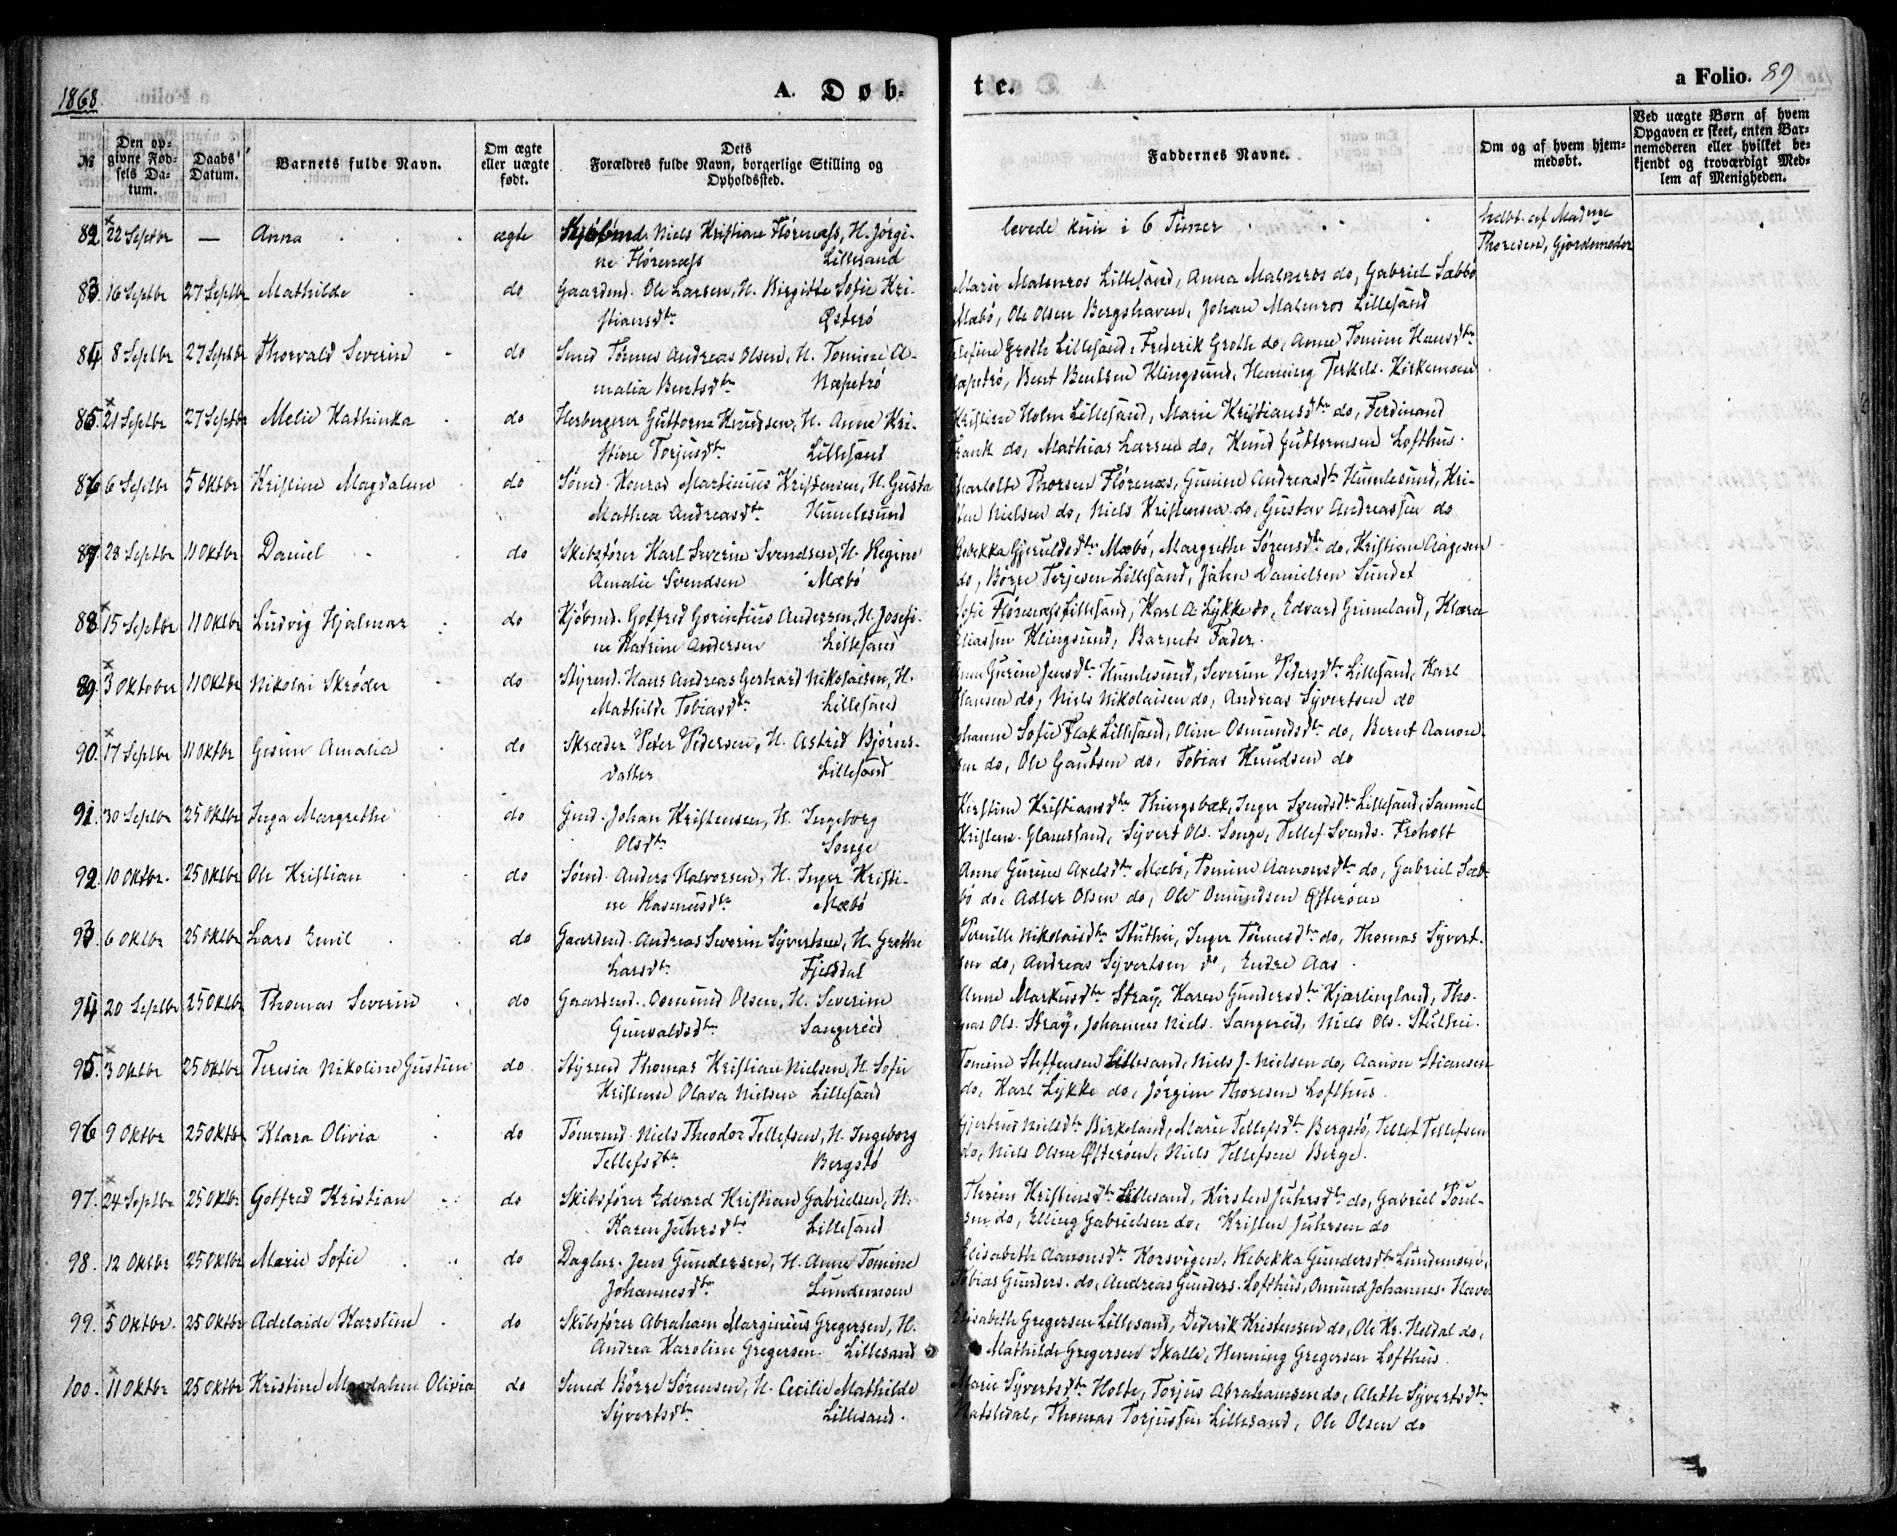 1868.
A. Døbte.
a Folio. 89
№
Den opgivne Fødsels Datum.
Daabs Datum.
Barnets fulde Navn.
Om ægte eller uægte født.
Dets Forældres fulde Navn, borgerlige Stilling og Opholdssted.
Faddernes Navne.
Om og af hvem hjemmedøbt.
Ved uægte Børn af hvem Opgaven er skeet, enten Barnemoderen eller hvilket bekjendt og troværdigt Medlem af Menigheden.
82. 22 Septbr — Anna ægte Kjøbmd. Niels Kristian Flørenæss, H. Jørgi- levede kun i 6 Timer hdbt. af Madme
ne Flørenæss Lillesand Thoresen, Gjordemoder
83. 16 Septbr 27 Septbr Mathilde do Gaardmd. Ole Larsen, H. Birgitte Sofie Kri- Marie Malmros Lillesand, Anna Malmros do, Gabriel Sæbbø
stiansdtr Østerø Mæbø, Ole Olsen Bergshaven, Johan Malmros Lillesand
84. 8 Septbr 27 Septbr Thorvald Severin do Smed Tønnes Andreas Olsen, H. Tomine A- Grothe Lillesand, Frederik Grothe do, Anne Tomine Hansdtr
malia Berntsdtr Næpetrø Næpetrø, Bent Bentsen Klingsund, Henning Terkels. Kirkemoen
85. 21 Septbr 27 Septbr Melie Kathinka do Herbergerer Guttorm Knudsen, H. Anne Kri- Kristine Holm Lillesand, Marie Kristiansdtr do, Ferdinand
stine Torjusdtr Lillesand Frank do, Mathias Larsen do, Knud Guttormsen Lofthus.
86. 6 Septbr 5 Oktbr Kristine Magdalene do Sømd. Konrad Martinius Kristensen, H. Gusta Charlotte Thorsen Flørenæs, Gunine Andreasdtr Humlesund, Kri-
Mathea Andreasdtr Humlesund sten Nielsen do, Niels Kristensen do, Gustav Andreassen do
87. 23 Septbr 11 Oktbr Daniel do Skibsfører Karl Severin Svendsen, H. Regine Rebekka Gjeruldsdtr Mæbø, Margrethe Sørensdtr do, Kristian Aagesen
Amalie Svendsen Mæbø do, Børre Terjesen Lillesand, Jahn Danielsen Sundet
88. 15 Septbr 11 Oktbr Ludvig Hjalmar do Kjøbmd. Gotfred Andersen, H. Josefi- Sofie Flørenæss Lillesand, Karl A. Lykke do, Edvard Grimeland, Klara
ne Katrine Andersen Lillesand Eliassen Klingsund, Barnets Fader.
89. 3 Oktober 11 Oktbr Nikolai Skrøder do Styrmd. Hans Andreas Gerhard Nikolaisen, H. Anne Gurine Jensdtr Humlesund, Severine Pedersdtr Lillesand, Karl
Mathilde Tobiasdtr Lillesand Hansen do, Niels Nikolaisen do, Andreas Syvertsen do
90. 17 Septbr 11 Oktbr Gesine Amalia do Skræder Peter Pedersen, H. Astrid Bjørns- Johanne Sofie Flak Lillesand, Oline Osmundsdtr do, Bernt Aanon-
datter Lillesand sen do, Ole Gautsen do, Tobias Knudsen do
91. 30 Septbr 25 Oktbr Inga Margrethe do Gmd. Johan Kristensen, H. Ingeborg Kirstine Kristiansdtr Thingsbæk, Inger Svendsdtr Lillesand, Samuel
Olsdtr Songe Kristens. Glamsland, Syvert Ols. Songe, Tellef Svends. Froholt
92. 10 Oktbr. 25 Oktbr Ole Kristian do Sømd. Anders Halvorsen, H. Inger Kristi- Anne Gurine Axelsdtr Mæbø, Tomine Aanonsdtr do, Gabriel Sæb-
ne Rasmusdtr Mæbø bø do, Adser Olsen do, Ole Omundsen Østerøen
93. 6 Oktbr 25 Oktbr Lars Emil do Gaardmd. Andreas Severin Syvertsen, H. Grethe Pernille Nikolaisdtr Stuthei, Inger Tønnesdtr do, Thomas Syvert-
Larsdtr Fjelddal sen do, Andreas Syvertsen do, Endre Aas.
94. 20 Septbr 25 Oktbr Thomas Severin do Gaardmd. Osmund Olsen, H. Severine Anne Markusdtr Strøy, Karen Gundersdtr Kjærlingland, Tho-
Gunvaldsdtr Sangereid mas Ols. Strøy, Johannes Niels. Sangereid, Niels Ols. Stuthei.
95. 3 Oktbr 25 Oktbr Teresia Nikoline Gustine do. Styrmd Thomas Kristian Nielsen, H. Sofie Tomine Steffensen Lillesand, Niels J. Nielsen do, Aanon Stiansen
Kristense Olava Nielsen Lillesand do, Karl Lykke do, Jørgen Thoresen Lofthus.
96. 9 Oktbr 25 Oktbr Klara Olivia do Tømmd. Niels Theodor Tellefsen, H. Ingeborg Gjertrud Nielsdtr Birkeland, Marie Tellefsdtr Bergstø, Tellef Tellefsen
Tellefsdtr Bergstø do, Niels Olsen Østerøen, Niels Tellefsen Berge.
97. 24 Septbr 25 Oktbr. Gotfred Kristian do Skibsfører Edvard Kristian Gabrielsen, H. Therine Kristensdtr Lillesand, Kirsten Juhrsdtr do, Gabriel Poul-
Karen Juhrsdtr Lillesand sen do, Elling Gabrielsen do, Kristen Juhrsen do
98. 12 Oktbr 25 Oktbr Marie Sofie do Daglnr. Jens Gundersen, H. Anne Tomine Elisabeth Aanonsdtr Korsvigen, Rebekka Gundersdtr Lundemoen,
Johannesdtr Lundemoen Tobias Gunders. do, Andreas Gunders. Lofthus, Omund Johannes. Have
99. 5 Oktbr. 25 Oktbr Adelaide Karoline do Skibsfører Abraham Marginius Gregersen, H. Elisabeth Gregersen Lillesand, Dederik Kristensen do, Ole Kr. Heldal do,
Andrea Karoline Gregersen. Lillesand Mathilde Gregersen Skalle, Henning Gregersen Lofthus.
100. 11 Oktbr 25 Oktbr Kristine Magdalene Olivia do Smed Børre Sørensen, H. Cecilie Mathilde Marie Syvertsdtr Holte, Torjus Abrahamsen do, Alethe Syvertsdtr
Syvertsdtr Lillesand. Thomas Torjussen Lillesand, Ole Olsen do